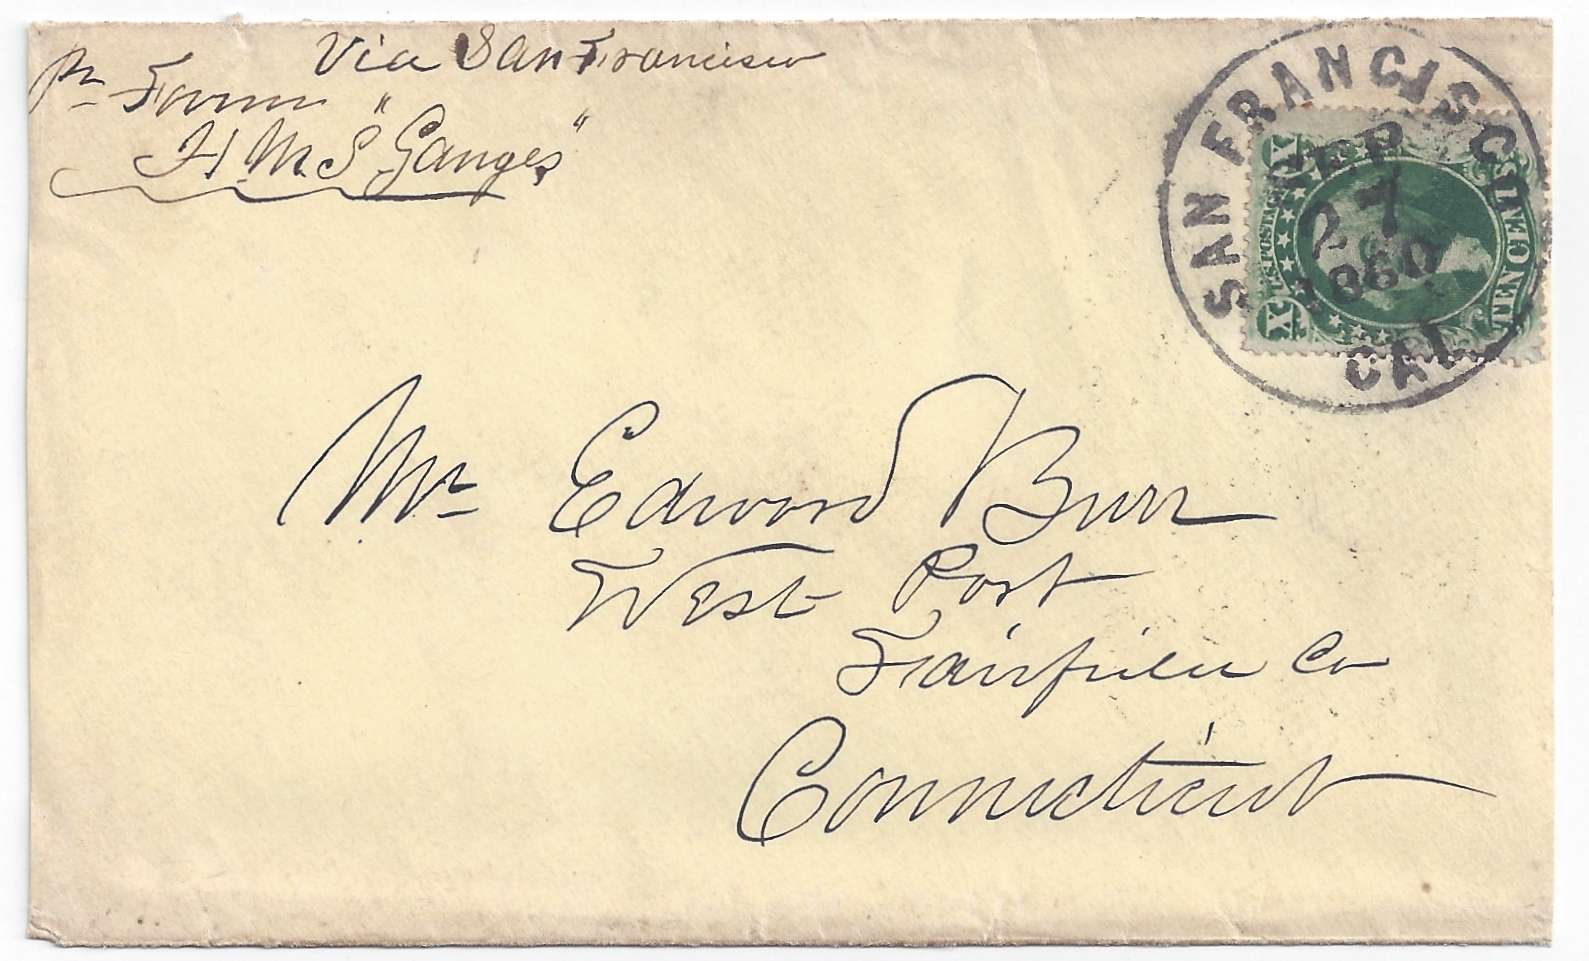 Via San Francisco
Pr Favour
H M S "Ganges"
SAN FRANCISCO
CAL.
SEP
27
1860
X X
U.S. POSTAGE
TEN CEN
Mr Edward Burr
West Port
Fairfield Co
Connecticut